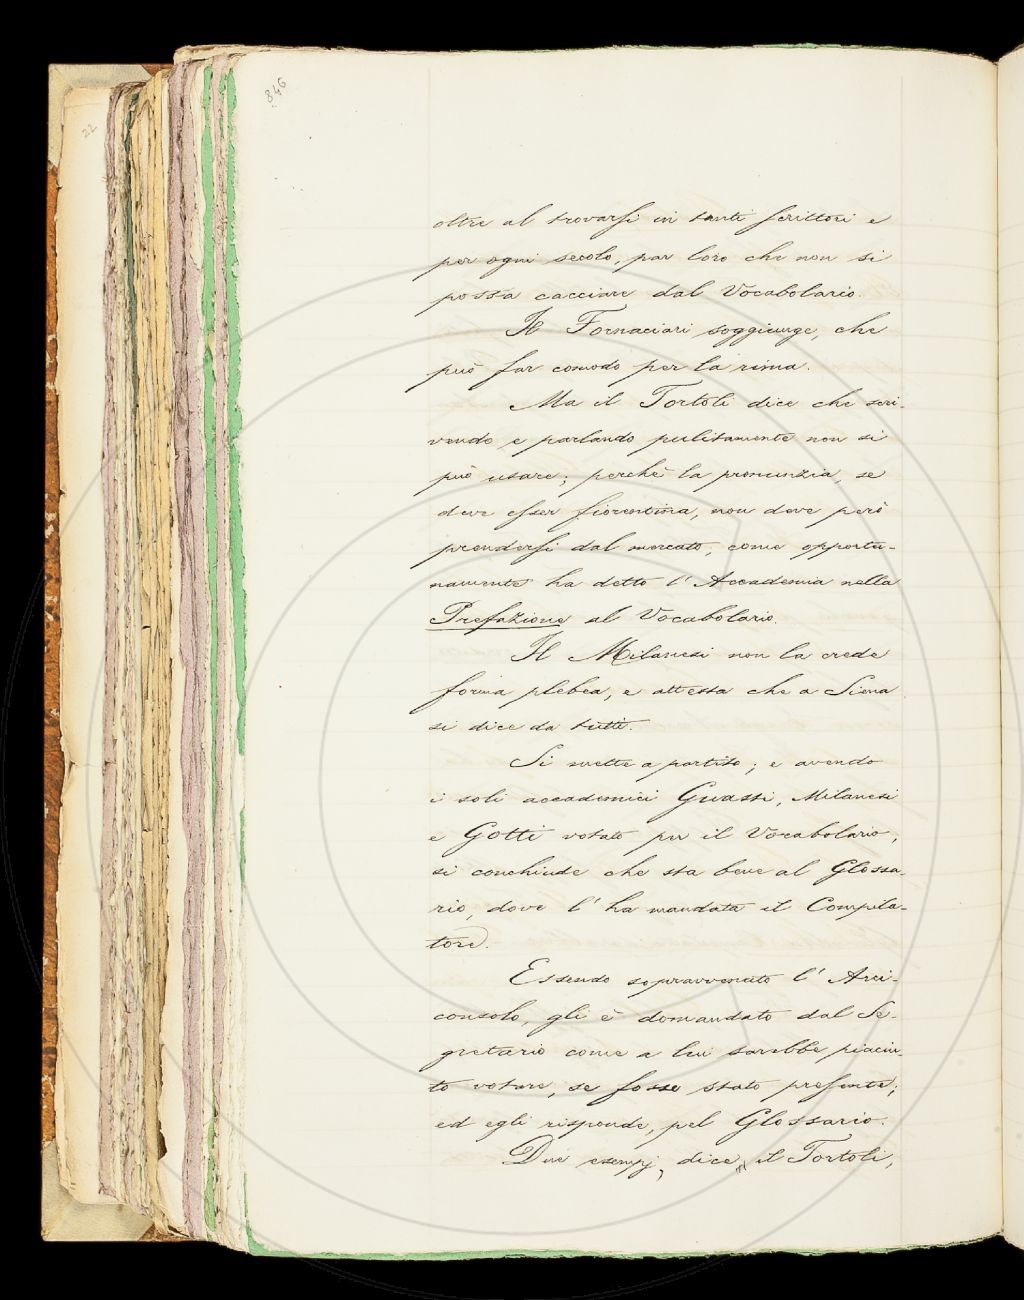 846
22
oltre al trovarsi in tanti scrittori e
per ogni secolo, par loro che non si
possa cacciare dal Vocabolario.
Il Fornaciari soggiunge, che
può far comodo per la rima.
Ma il Tortoli dice che scri-
vendo e parlando pulitamente non si
può usare; perchè la pronunzia, se
deve esser fiorentina, non deve però
prendersi dal mercato, come opportu-
namente ha detto l'Accademia nella
Prefazione al Vocabolario.
Il Milanesi non la crede
forma plebea, e attesta che a Siena
si dice da tutti.
Si mette a partito; e avendo
i soli accademici Guasti, Milanesi
e Gotti votato per il Vocabolario,
si conchiude che sta bene al Glossa-
rio, dove l'ha mandata il Compila-
tore.
Essendo sopravvenuto l'Arci-
consolo, gli è domandato dal Se-
gretario come a lui sarebbe piaciu-
to votare, se fosse stato presente;
ed egli risponde, pel Glossario.
Due esempj, dice il Tortoli,